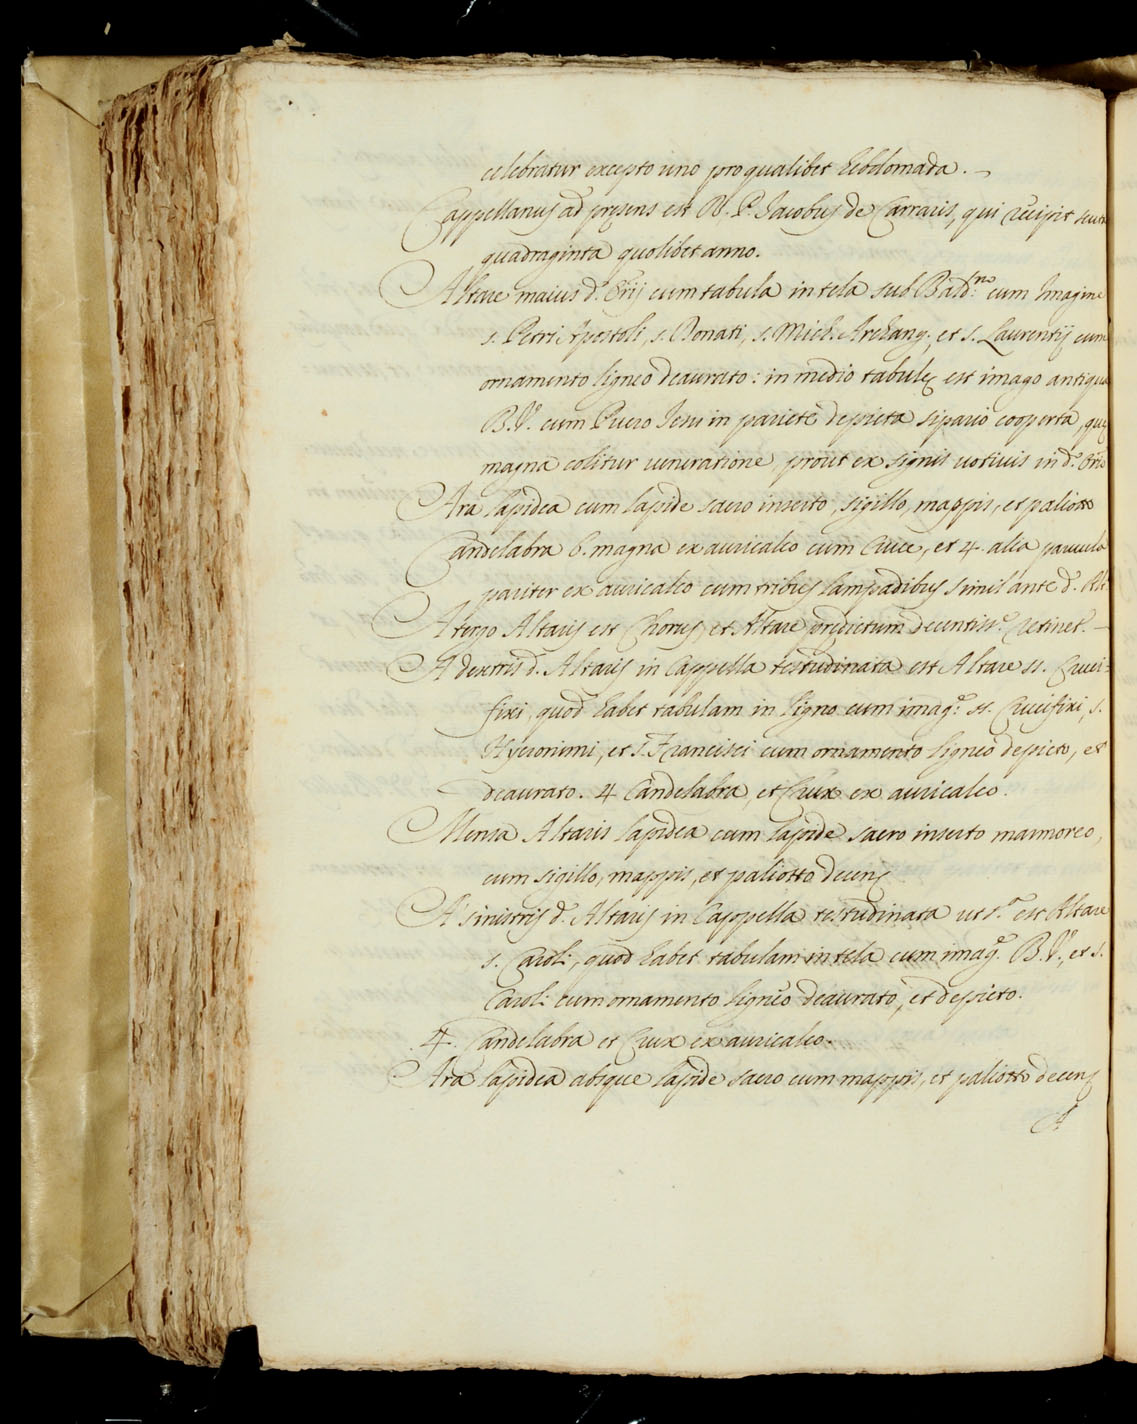 celebratur excepto uno pro qualibet hebdomada.
Cappellanus ad pręsens est R. P. Jacobus de Carraris, qui recipit scuta
quadraginta quolibet anno.
Altare maius d.i Orij cum tabula in tela sub Bald.no cum Imagine
s. Petri Apostoli, s. Donati, s. Mich. Archang. et s. Laurentij cum
ornamento ligneo deaurato: in medio tabulę est imago antiqua
B.V. cum Puero Jesu in pariete depicta sipario cooperta, quę
magna colitur veneratione, prout ex signis votivis in d.o Orio
Ara lapidea cum lapide sacro inserto, sigillo, mappis, et paliotto
Candelabra 6. magna ex auricalco cum Cruce, et 4. alia parvula
pariter ex auricalco cum tribus lampadibus simil ante d. Alt.
A tergo Altaris est Chorus, et Altare prędictum decentiss.e retinet.
A dextris d. Altaris in Cappella testudinata est Altare ss. Cruci-
fixi, quod habet tabulam in ligno cum imag.e ss. Crucifixi, s.
Hyeronimi, et s. Francisci cum ornamento ligneo depicto, et
deaurato. 4 Candelabra, et Crux ex auricalco.
Mensa Altaris lapidea cum lapide sacro inserto marmoreo,
cum sigillo, mappis, et paliotto decenę
A sinistris d. Altaris in Cappella testudinata ut s.a est Altare
s. Caroli, quod habet tabulam in tela cum imag.e B.V., et s.
Caroli cum ornamento ligneo deaurato, et depicto.
4. Candelabra et Crux ex auricalco.
Ara lapidea absque lapide sacro cum mappis, et paliotto decenę
A